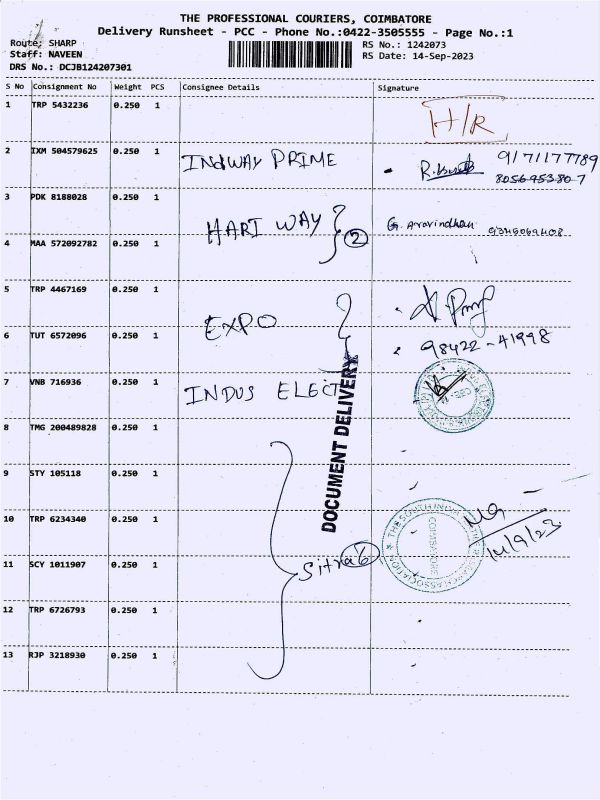 THE PROFESSIONAL COURIERS, COIMBATORE
Delivery Runsheet - PCC - Phone No.:0422-3505555 - Page No.:1
Route: SHARP
RS No.: 1242073
Staff: NAVEEN
RS Date: 14-Sep-2023
DRS No.: DCJB124207301
S No Consignment No Weight PCS Consignee Details Signature
1 TRP 5432236 0.250 1 H/R
2 IXM 504579625 0.250 1 INDWAY PRIME 9171177789
8056953807
3 PDK 8188028 0.250 1
HARI WAY G. Aravindhan
4 MAA 572092782 0.250 1 2
5 TRP 4467169 0.250 1
EXPO
6 TUT 6572096 0.250 1 98422-41998
7 VNB 716936 0.250 1 INDUS ELECT
DOCUMENT DELIVERY
8 TMG 200489828 0.250 1
9 STY 105118 0.250 1
10 TRP 6234340 0.250 1
14/9/23
THE SOUTH INDIA TEXTILE RESEARCH ASSOCIATION
COIMBATORE
11 SCY 1011907 0.250 1 Sitra 6
12 TRP 6726793 0.250 1
13 RJP 3218930 0.250 1